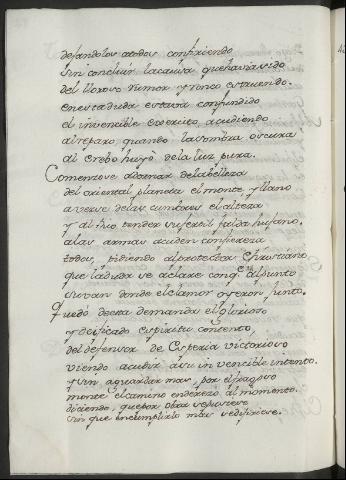 dejandolos atodos confiriendo
sin concluir lacausa quehavia sido
del lloroso rumor y ronco estruendo.
enestaduda estava confundido
el invencible exercito, acudiendo
alreparo, quando lasombra oscura
al Erebo huyo dela luz pura.
Comenzose adornar delabelleza
del oriental planeta el monte y llano
averse delas cumbres el alteza
y al frio tender su fertil falda
alas armas acuden con fiereza
todos, pidiendo alprotector Christiano
que laduda se aclare con que al punto
suvan donde el clamor oyeron junto.
Quedó desta demanda el glorioso
y deificado espiritu contento,
del defensor de Esperia victorioso
viendo acudir asu invencible intento.
y sin aguardar mas, por el fragoso
monte el camino enderezó al momento.
diciendo, quepor obra sepusiese
sin que incumplirlo mas sedifiriese.